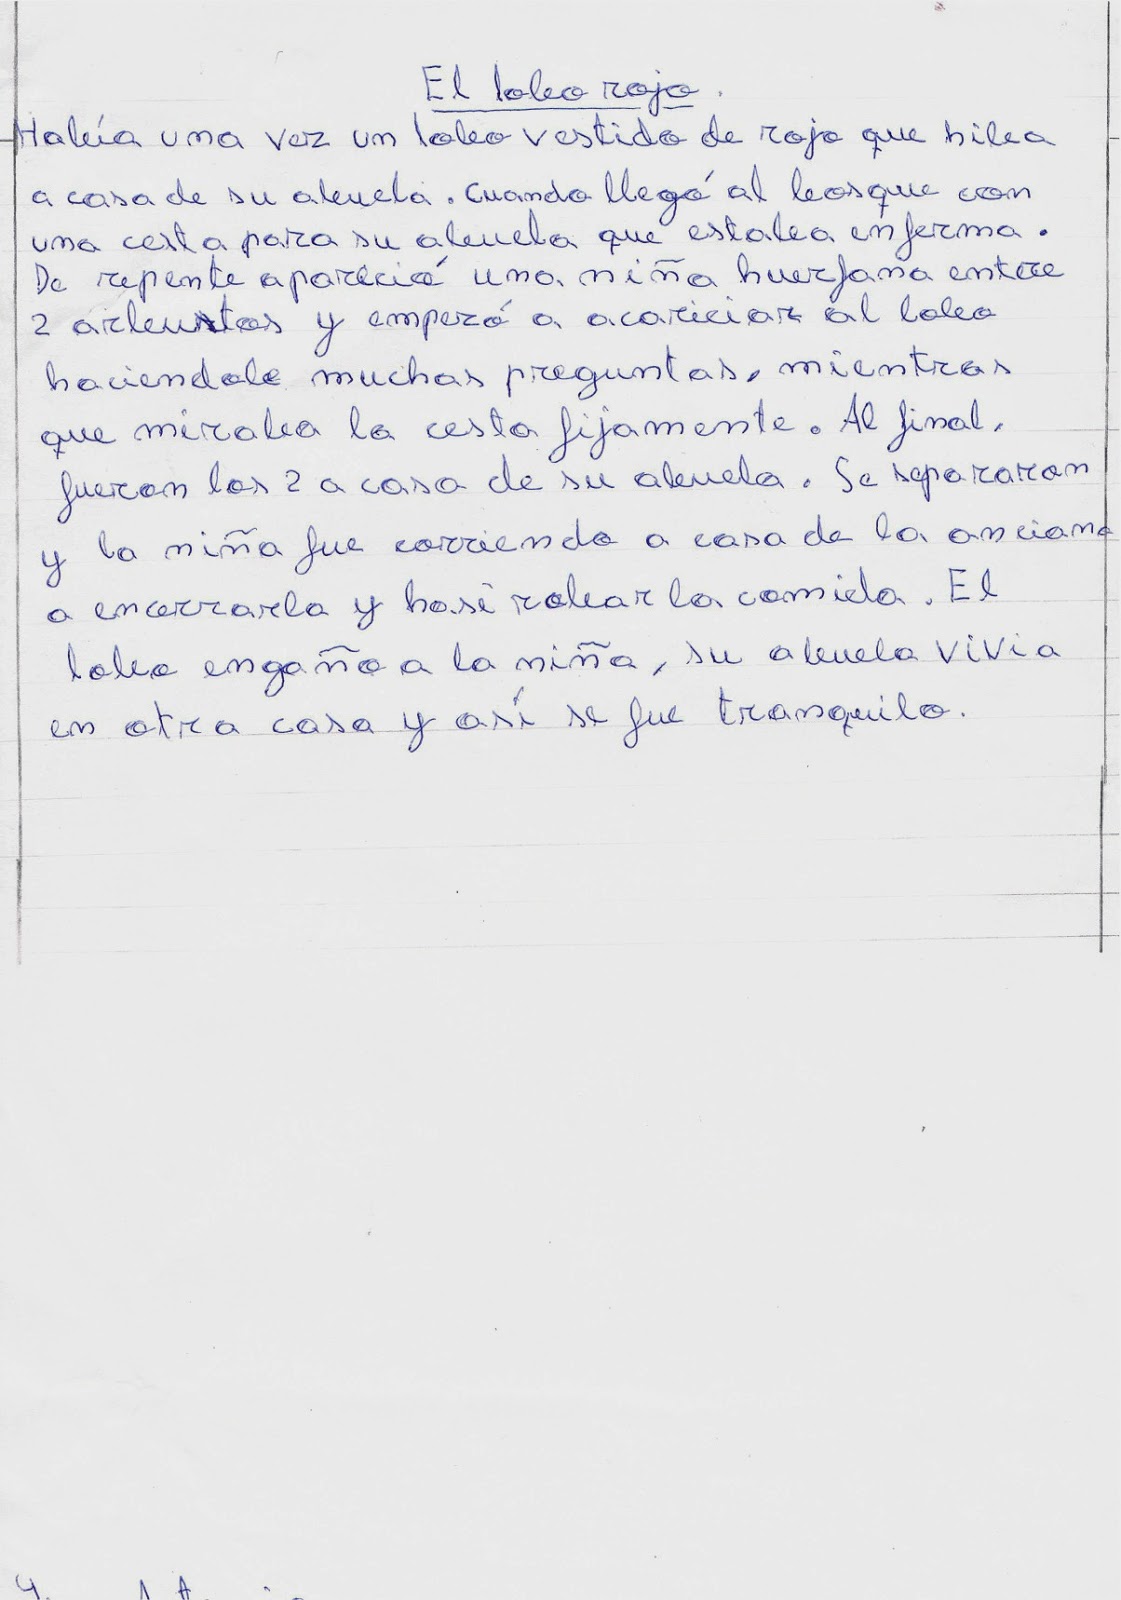 El lobo rojo.
Había una vez un lobo vestido de rojo que hiba
a casa de su abuela. Cuando llegó al bosque con
una cesta para su abuela que estaba enferma.
De repente aparició una niña huerfana entre
2 arbustos y emperó a acariciar al lobo
haciendole muchas preguntas, mientras
que miraba la cesta fijamente. Al final,
fueron los 2 a casa de su abuela. Se separaron
y la niña fue corriendo a casa de la anciana
a encerrarla y hasi robar la comida. El
lobo engaño a la niña, su abuela vivia
en otra casa y así se fue tranquilo.